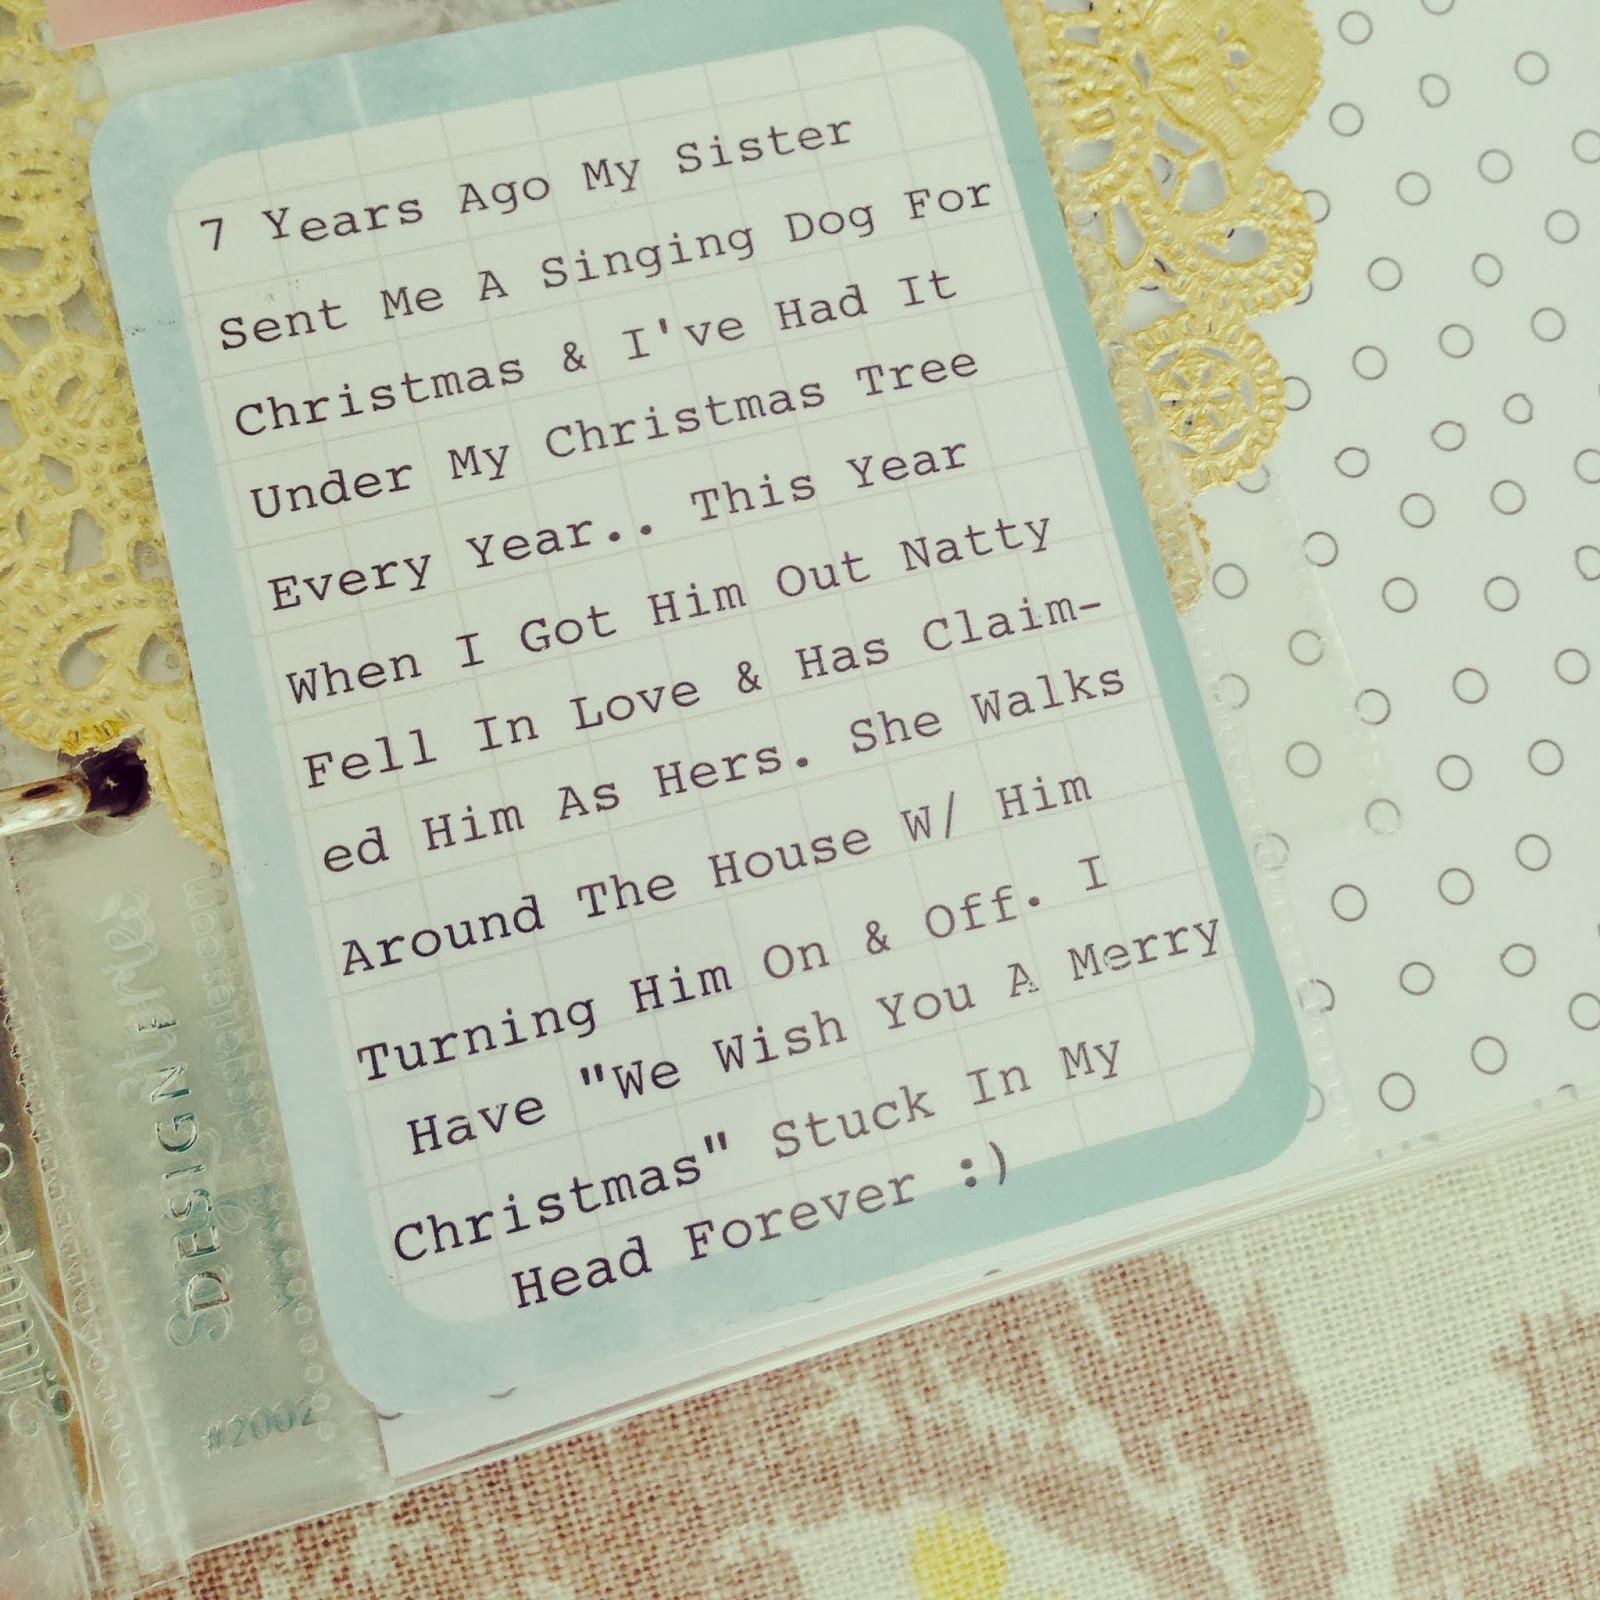 7 Years Ago My Sister
Sent Me A Singing Dog For
Christmas & I've Had It
Under My Christmas Tree
Every Year.. This Year
When I Got Him Out Natty
Fell In Love & Has Claim-
ed Him As Hers. She Walks
Around The House W/ Him
Turning Him On & Off. I
Have "We Wish You A Merry
Christmas" Stuck In My
Head Forever :)
DESIGN
#2002